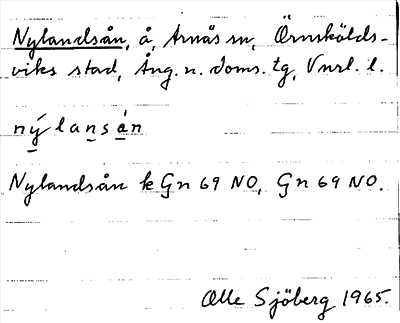 Nylandsån, å, Arnäs sn, Örnskölds-
viks stad, Ång. n. doms. tg, Vnrl. l.
ný lansán
Nylandsån k Gn 69 NO, Gn 69 NO.
Olle Sjöberg 1965.